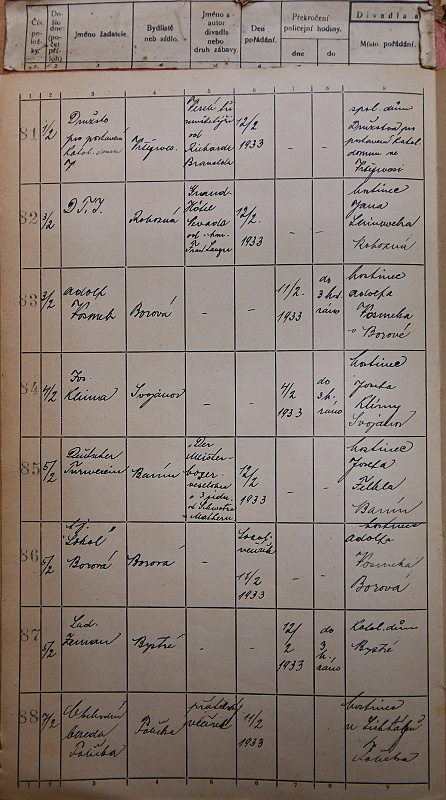 Čís. polož-ky.
Došlo dne: (počet příloh)
Jméno žadatele.
Bydliště neb sídlo.
Jméno a autor divadla nebo druh zábavy.
Den pořádání.
Překročení policejní hodiny.
dne
do
Divadla a
Místo pořádání.
1 2 3 4 5 6 7 8 9
81
3/2
Družstvo
pro postavení
katol. domu
Veselé tři
od
Richarda
Brandla
12/2
1933
-
-
spol. dům
Družstva pro
postavení katol
domu ve
82
3/2
D.T.J.
Rohozná
Grand-
Hôtel
Nevada
od
12/2.
1933
-
-
hostinec
Jana
Rohozná
83
3/2
Adolf
Kosmek
Borová
-
-
11/2.
1933
do
3 hd
ráno
hostinec
Adolfa
Kosmeka
v Borové
84
4/2
Jos.
Klíma
Svojanov
-
-
4/2
1933
do
3 h.
ráno
hostinec
Josefa
Klímy
Svojanov
85
5/2
Deutscher
Turnverein
Banín
"Der
Meister-
boxer"
veselohra
o 3 jedn.
12/2
1933
-
-
hostinec
Josefa
Banín
86
5/2
tj.
"Sokol"
Borová
Borová
-
Sokol.
věneček
11/2
1933
-
-
hostinec
Adolfa
Kosmeka
Borová
87
5/2
Lad.
Zeman
Bystré
-
-
12/
2
1933
do
3
h.
ráno
Katol. dům
Bystré
88
7/2
Obchodní
beseda
Polička
Polička
přátelský
večírek
11/2
1933
-
-
hostinec
Polička
1 2 3 4 5 6 7 8 9